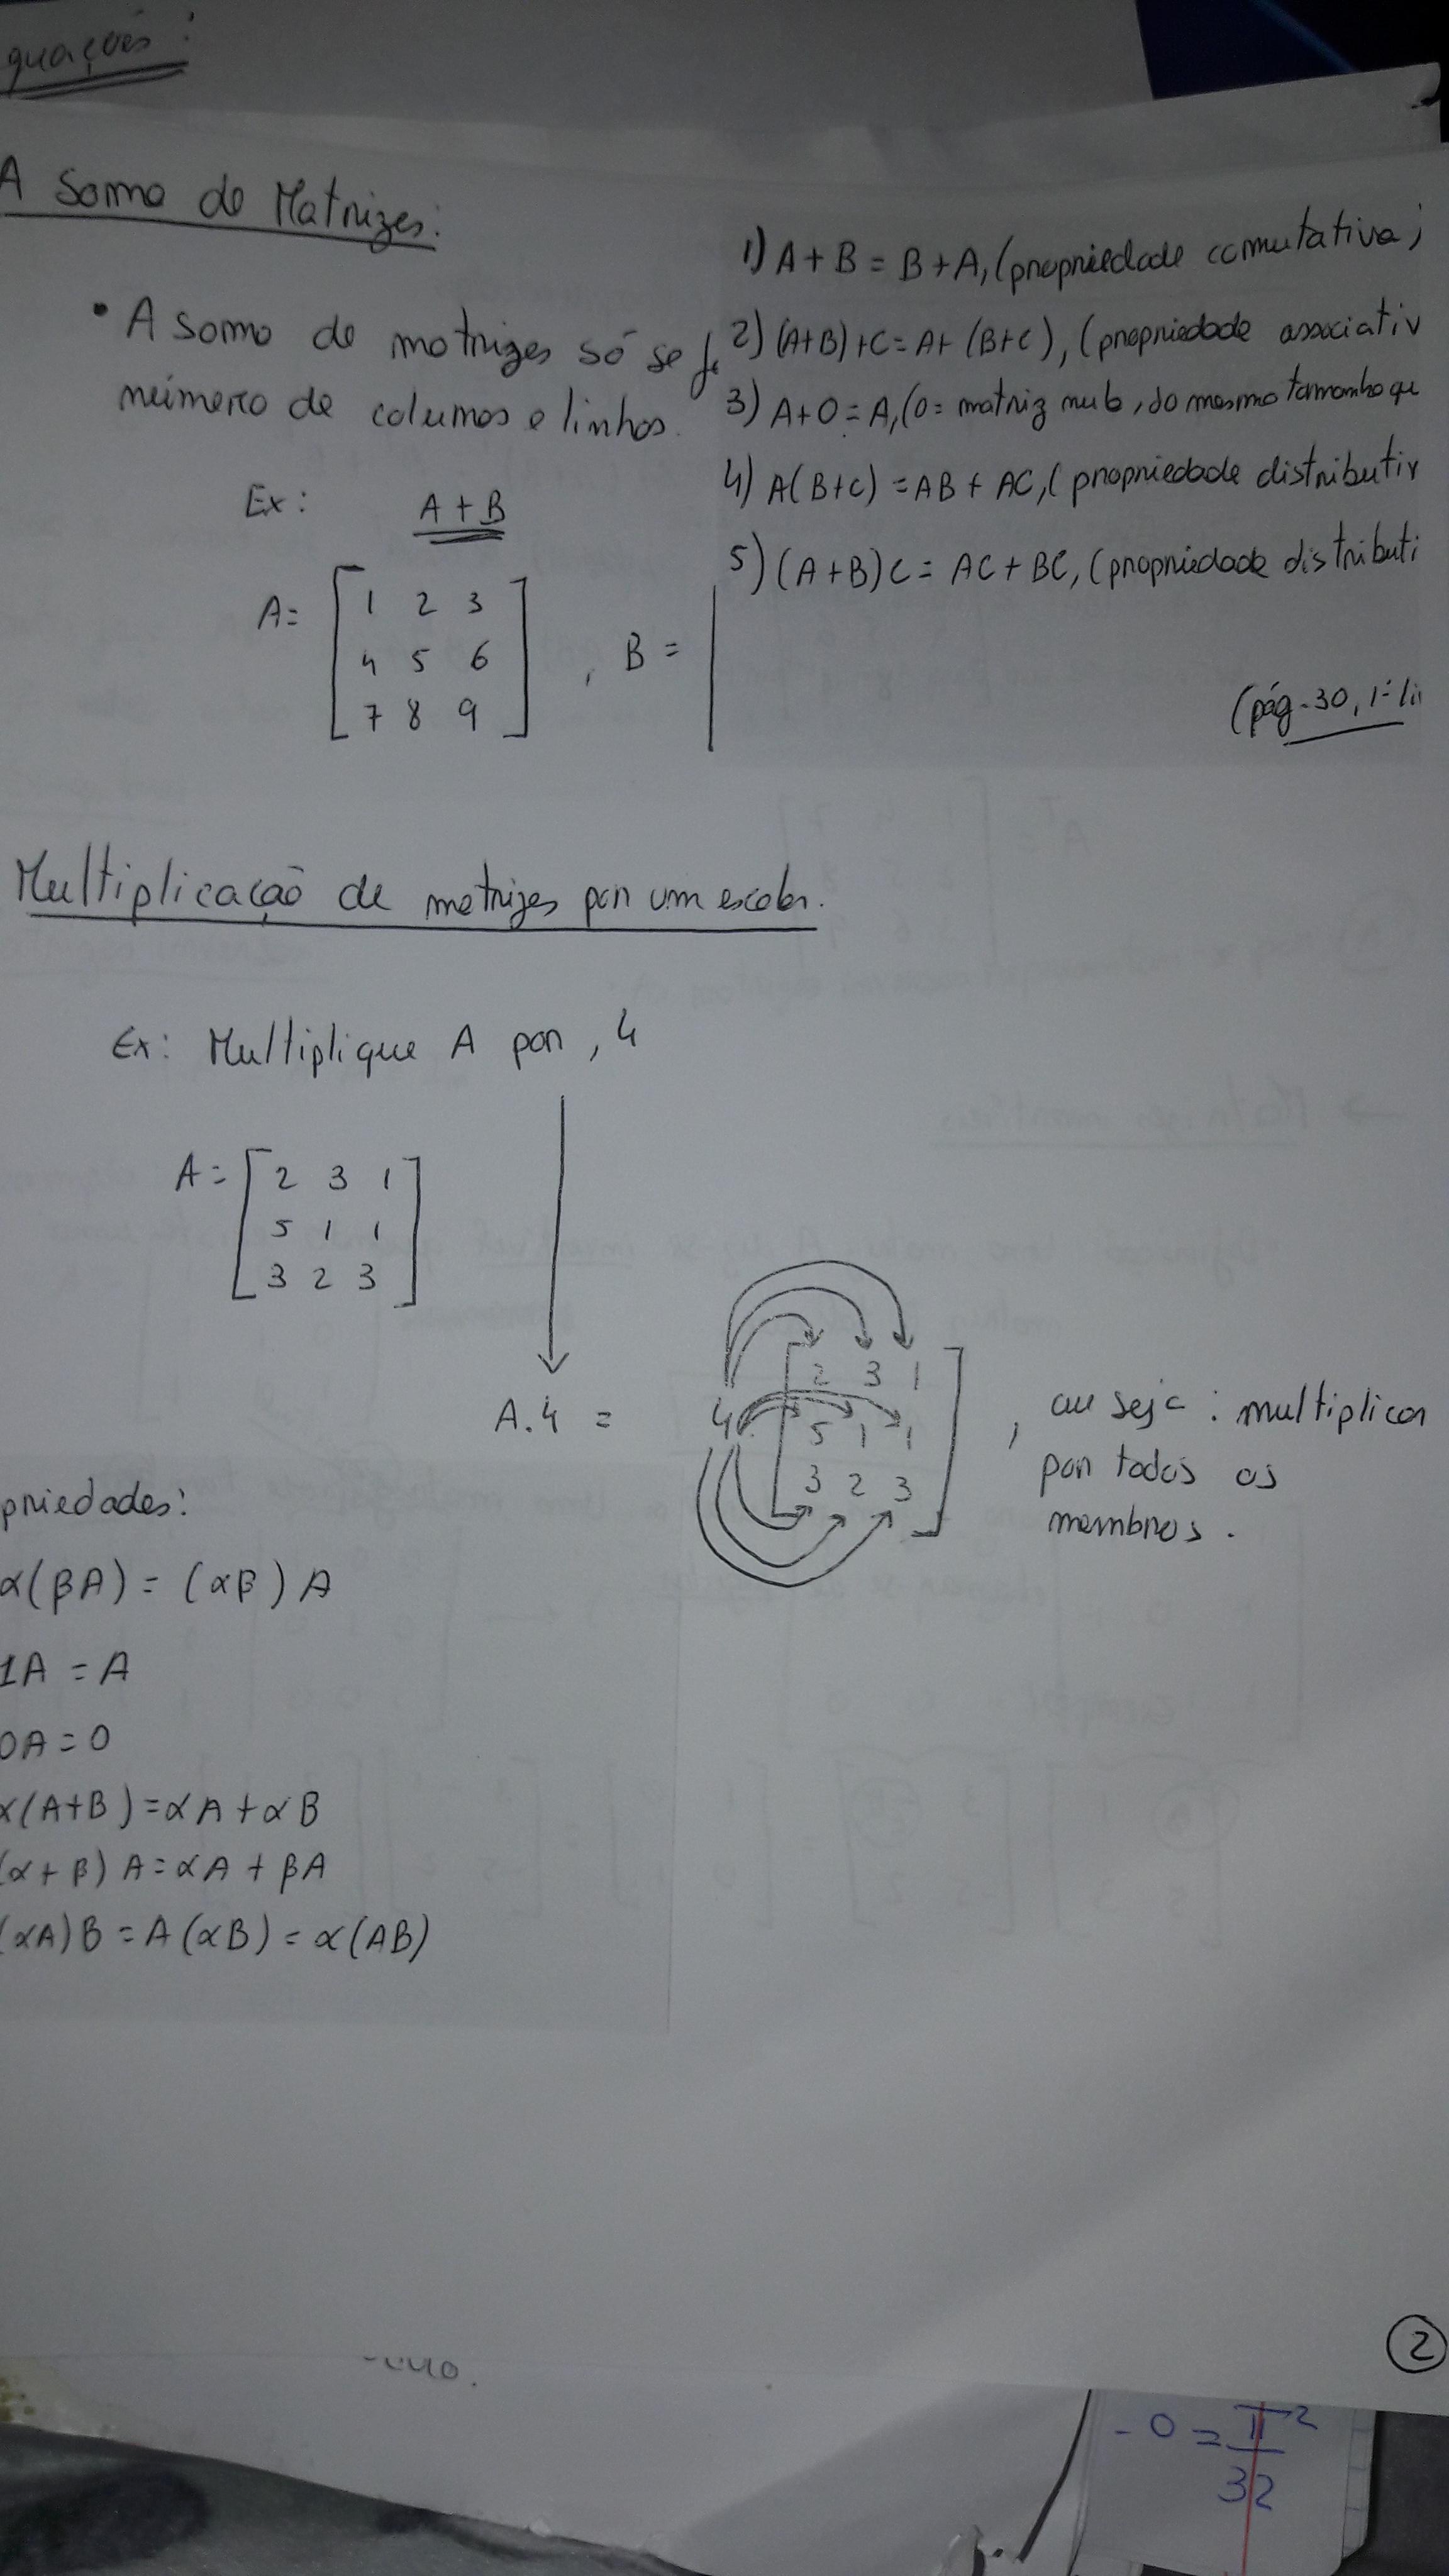 quações:
A Soma de Matrizes:
• A soma de matrizes só se f
número de colunas e linhos.
Ex: A + B
A= [ 1 2 3
4 5 6
7 8 9 ] , B =
1) A + B = B + A, (propriedade comutativa)
2) (A+B)+C = A+ (B+C), (propriedade associativ
3) A+O = A, (O = matriz nula, do mesmo tamanho qu
4) A(B+C) = AB + AC, ( propriedade distributiv
5) (A+B)C = AC + BC, (propriedade distributi
(pág. 30, 1º li
Multiplicação de matrizes por um escalar.
Ex: Multiplique A por, 4
A= [ 2 3 1
5 1 1
3 2 3 ]
A.4 = 4. [ 2 3 1
5 1 1
3 2 3 ]
, ou seja: multiplicar
por todos os
membros.
priedades:
α(βA) = (αβ) A
1A = A
0A = 0
α(A+B) = αA + αB
(α + β) A = αA + βA
(αA)B = A(αB) = α(AB)
2
- 0 = π²/32